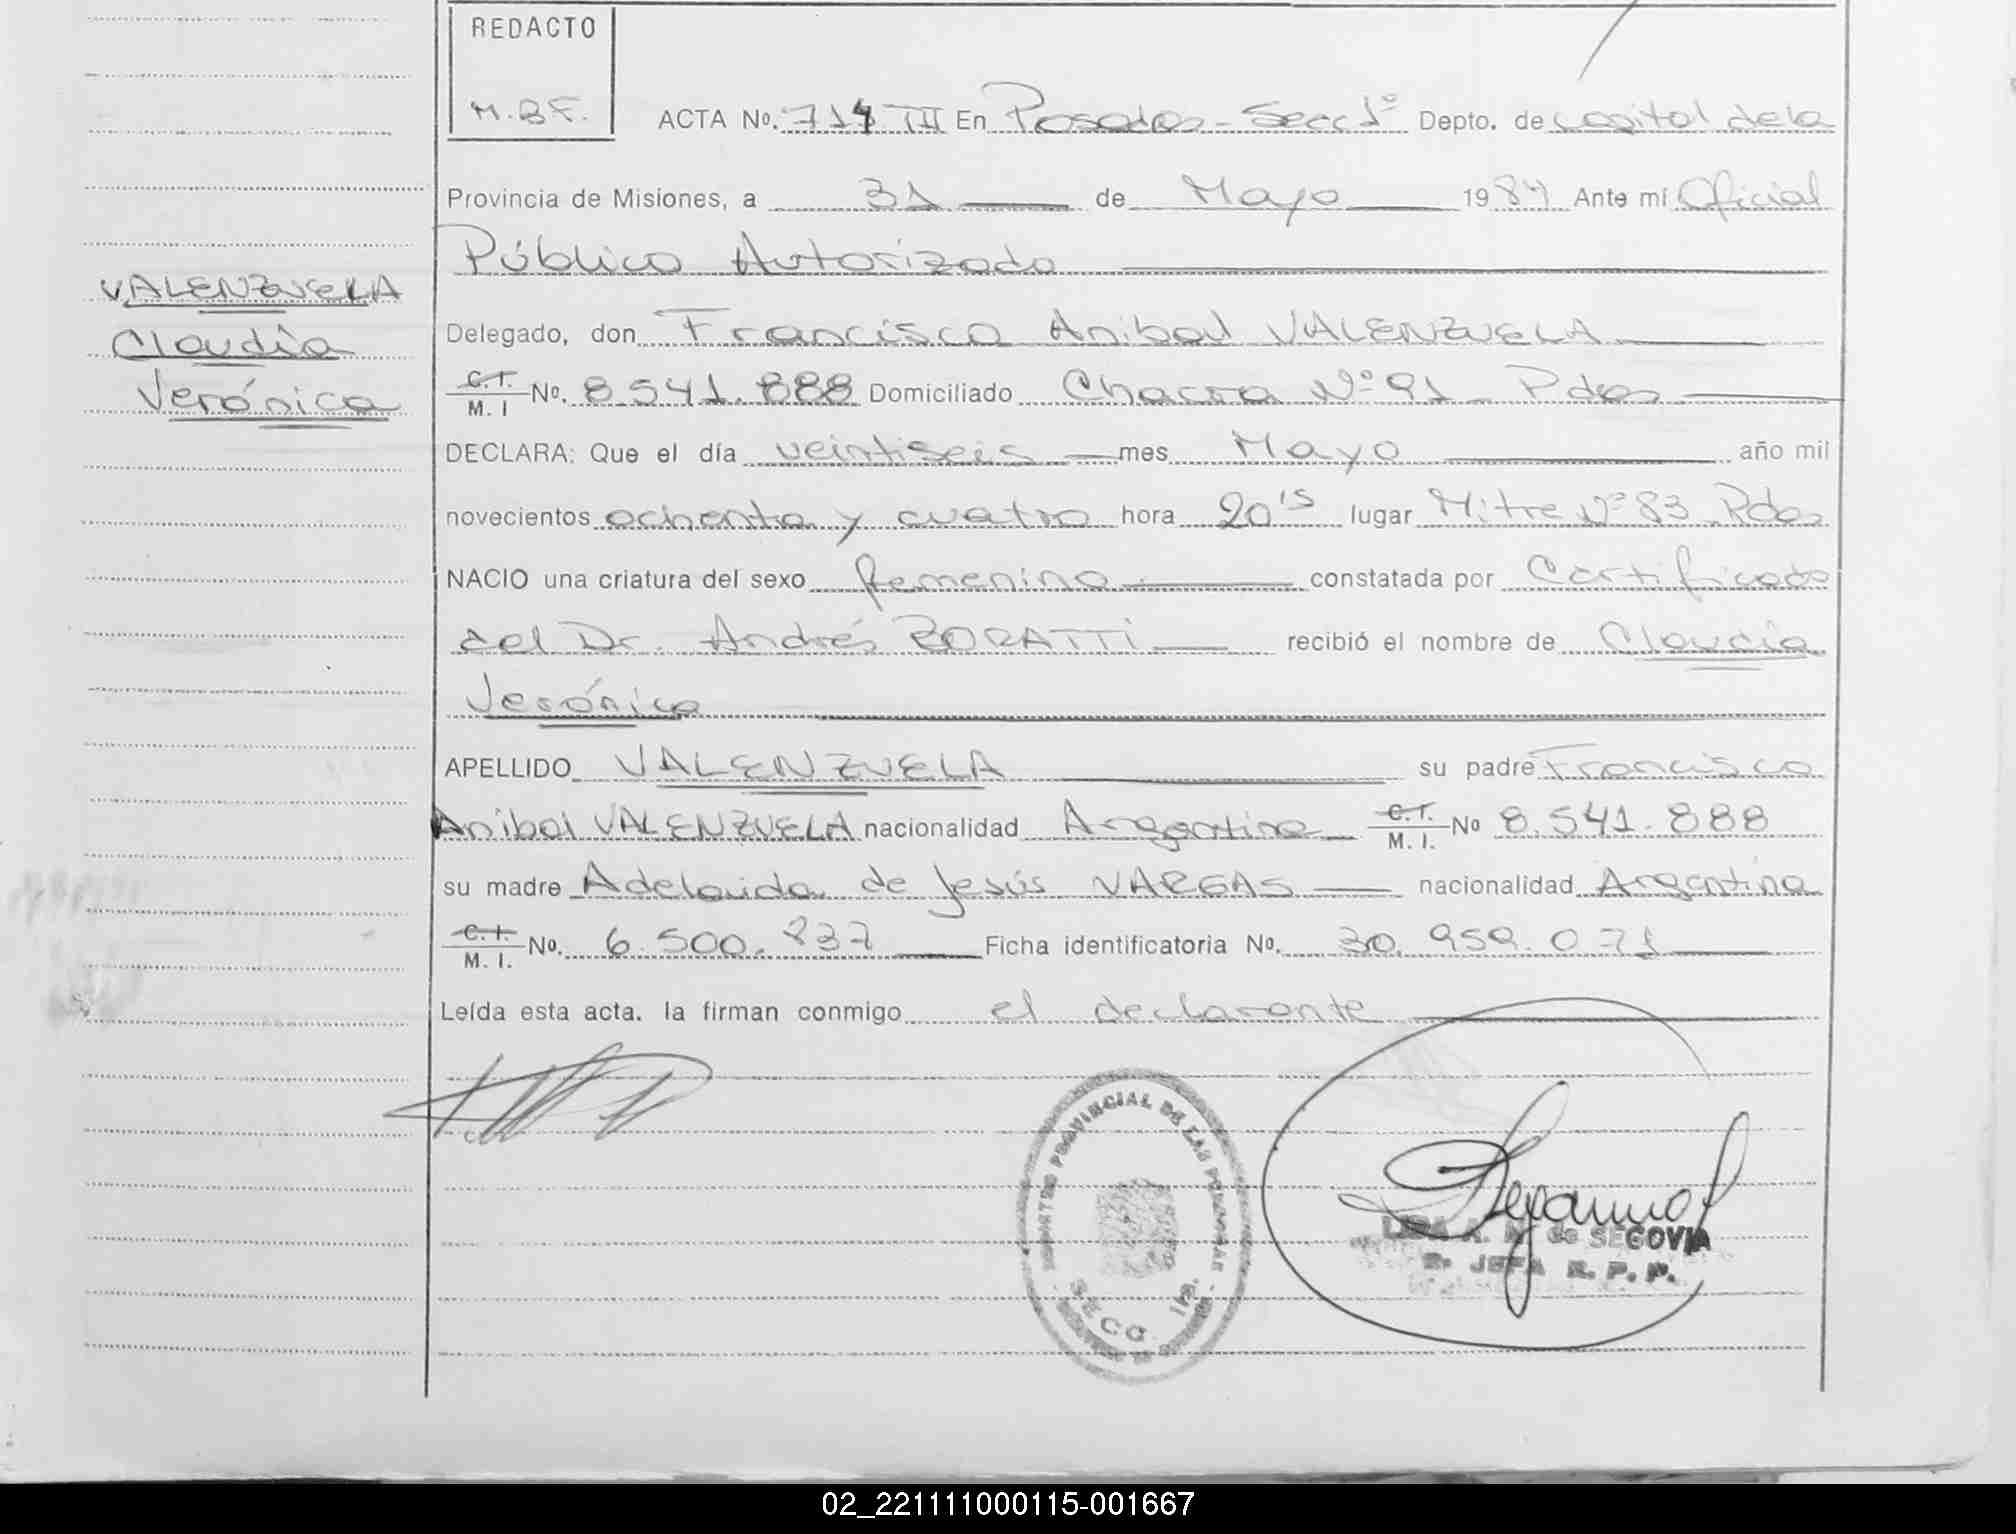 REDACTO
M.B.F.
ACTA No. 714 III En Posadas - Secc 1º Depto. de Capital de la
Provincia de Misiones, a 31 de Mayo 1984 Ante mí Oficial
Público Autorizado
VALENZUELA
Claudia
Verónica
Delegado, don Francisco Anibal VALENZUELA
C.I. M. I No. 8.541.888 Domiciliado Chacra Nº 91 - Pdas
DECLARA: Que el día veintiseis mes Mayo año mil
novecientos ochenta y cuatro hora 20'15 lugar Mitre Nº 83 Pdas
NACIO una criatura del sexo femenino constatada por Certificado
del Dr. Andrés BORATTI recibió el nombre de Claudia
Verónica
APELLIDO VALENZUELA su padre Francisco
Anibal VALENZUELA nacionalidad Argentina C.I. M. I. No 8.541.888
su madre Adelaida de Jesús VARGAS nacionalidad Argentina
C.I. M. I. No. 6.500.237 Ficha identificatoria No. 30.959.071
Leída esta acta. la firman conmigo el declarante
REGISTRO PROVINCIAL DE LAS PERSONAS
SECC. 1ra.
de SEGOVIA
JEFA R. P. P.
02_221111000115-001667